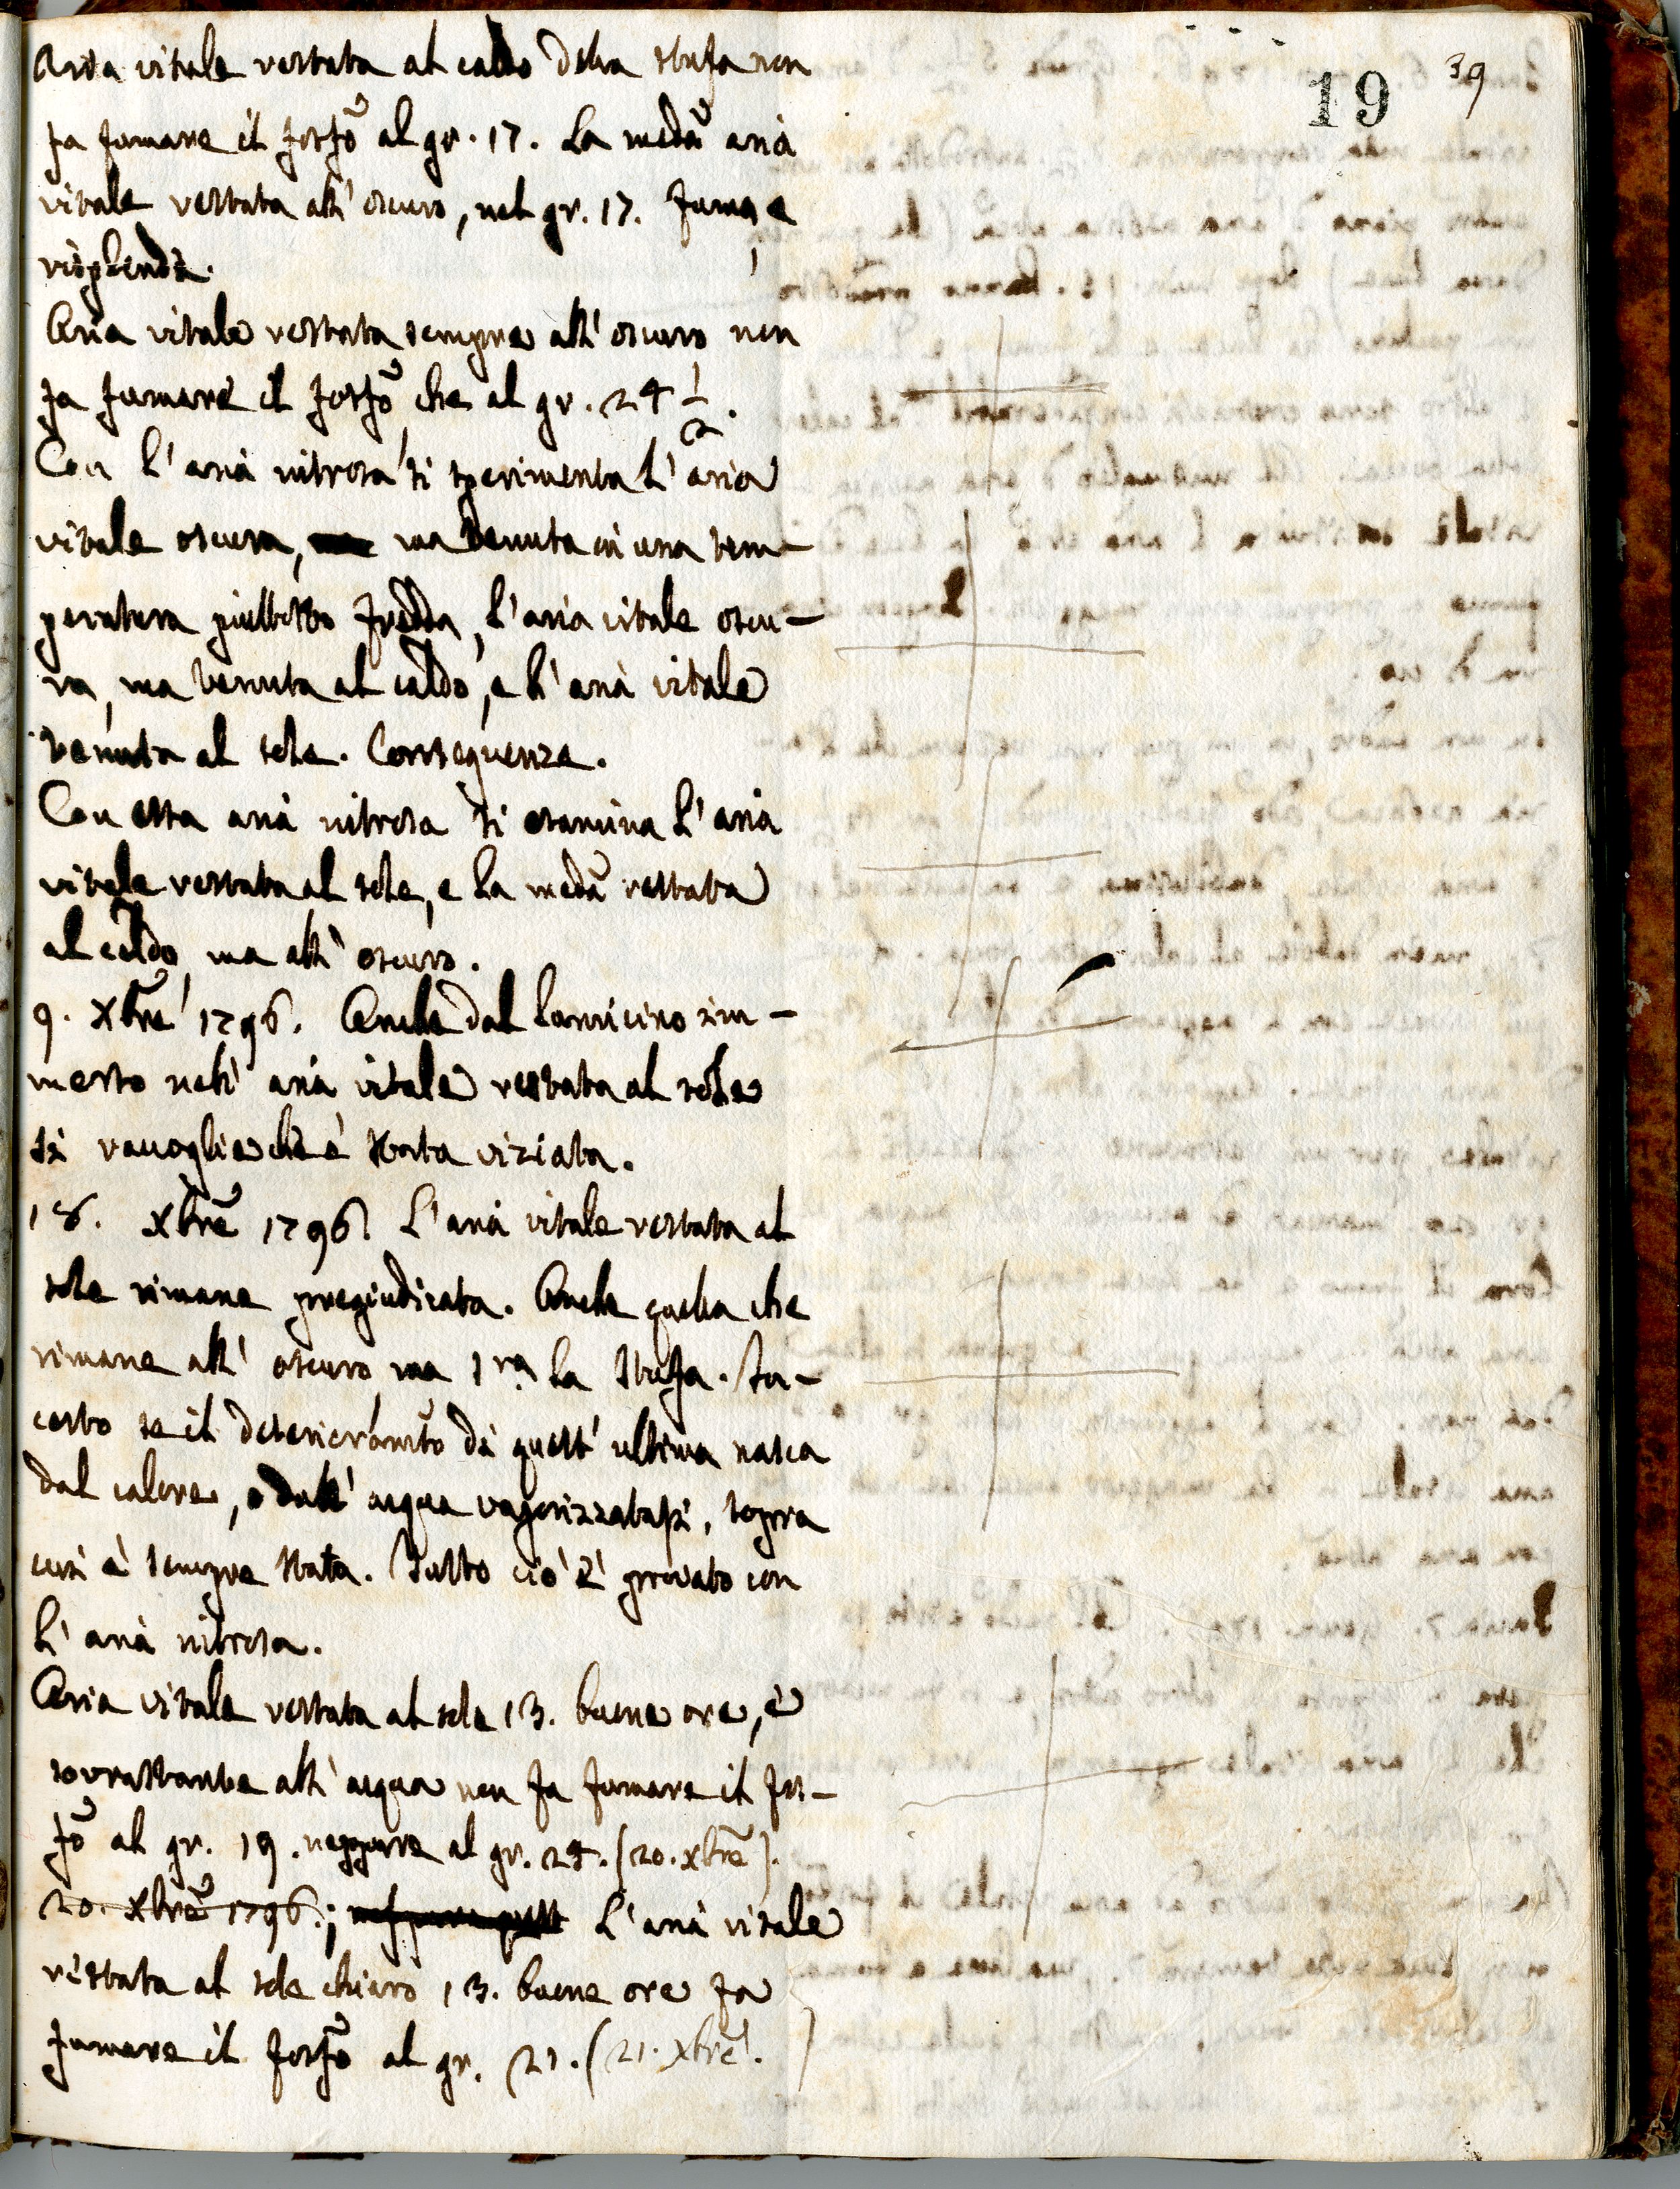 19 39
Aria vitale restata al caldo della stufa non
fa fumare il fosfo al gr. 17. La meda aria
vitale restata all' oscuro, nel gr. 17. fuma, e
risplende.
Aria vitale restata sempre all' oscuro non
fa fumare il fosfo che al gr. 24 1/2.
Con l' aria nitrosa si sperimenta l' aria
vitale oscura, ma tenuta in una tem-
peratura piuttosto fredda, l' aria vitale oscu-
ra, ma tenuta al caldo, e l' aria vitale
tenuta al sole. Conseguenze.
Con essa aria nitrosa si esamina l' aria
vitale restata al sole, e la meda restata
al caldo, ma all' oscuro.
9. Xbre 1796. Anche dal lumicino im-
merso nell' aria vitale restata al sole
si raccoglie che è stata viziata.
18. Xbre 1796. L' aria vitale restata al
sole rimane pregiudicata. Anche quella che
rimane all' oscuro, ma 1ra la stufa. In-
certo se il deterioramto di quest' ultima nasca
dal calore, o dall' acqua vaporizzatasi, sopra
cui è sempre stata. Tutto ciò è provato con
l' aria nitrosa.
Aria vitale restata al sole 13. buone ore, e
sovrastante all' acqua non fa fumare il fos-
fo al gr. 19. neppure al gr. 24. (20. xbre).
20. Xbre 1796.; L' aria vitale
restata al sole chiaro 13. buone ore fa
fumare il fosfo al gr. 21. (21. Xbre.)